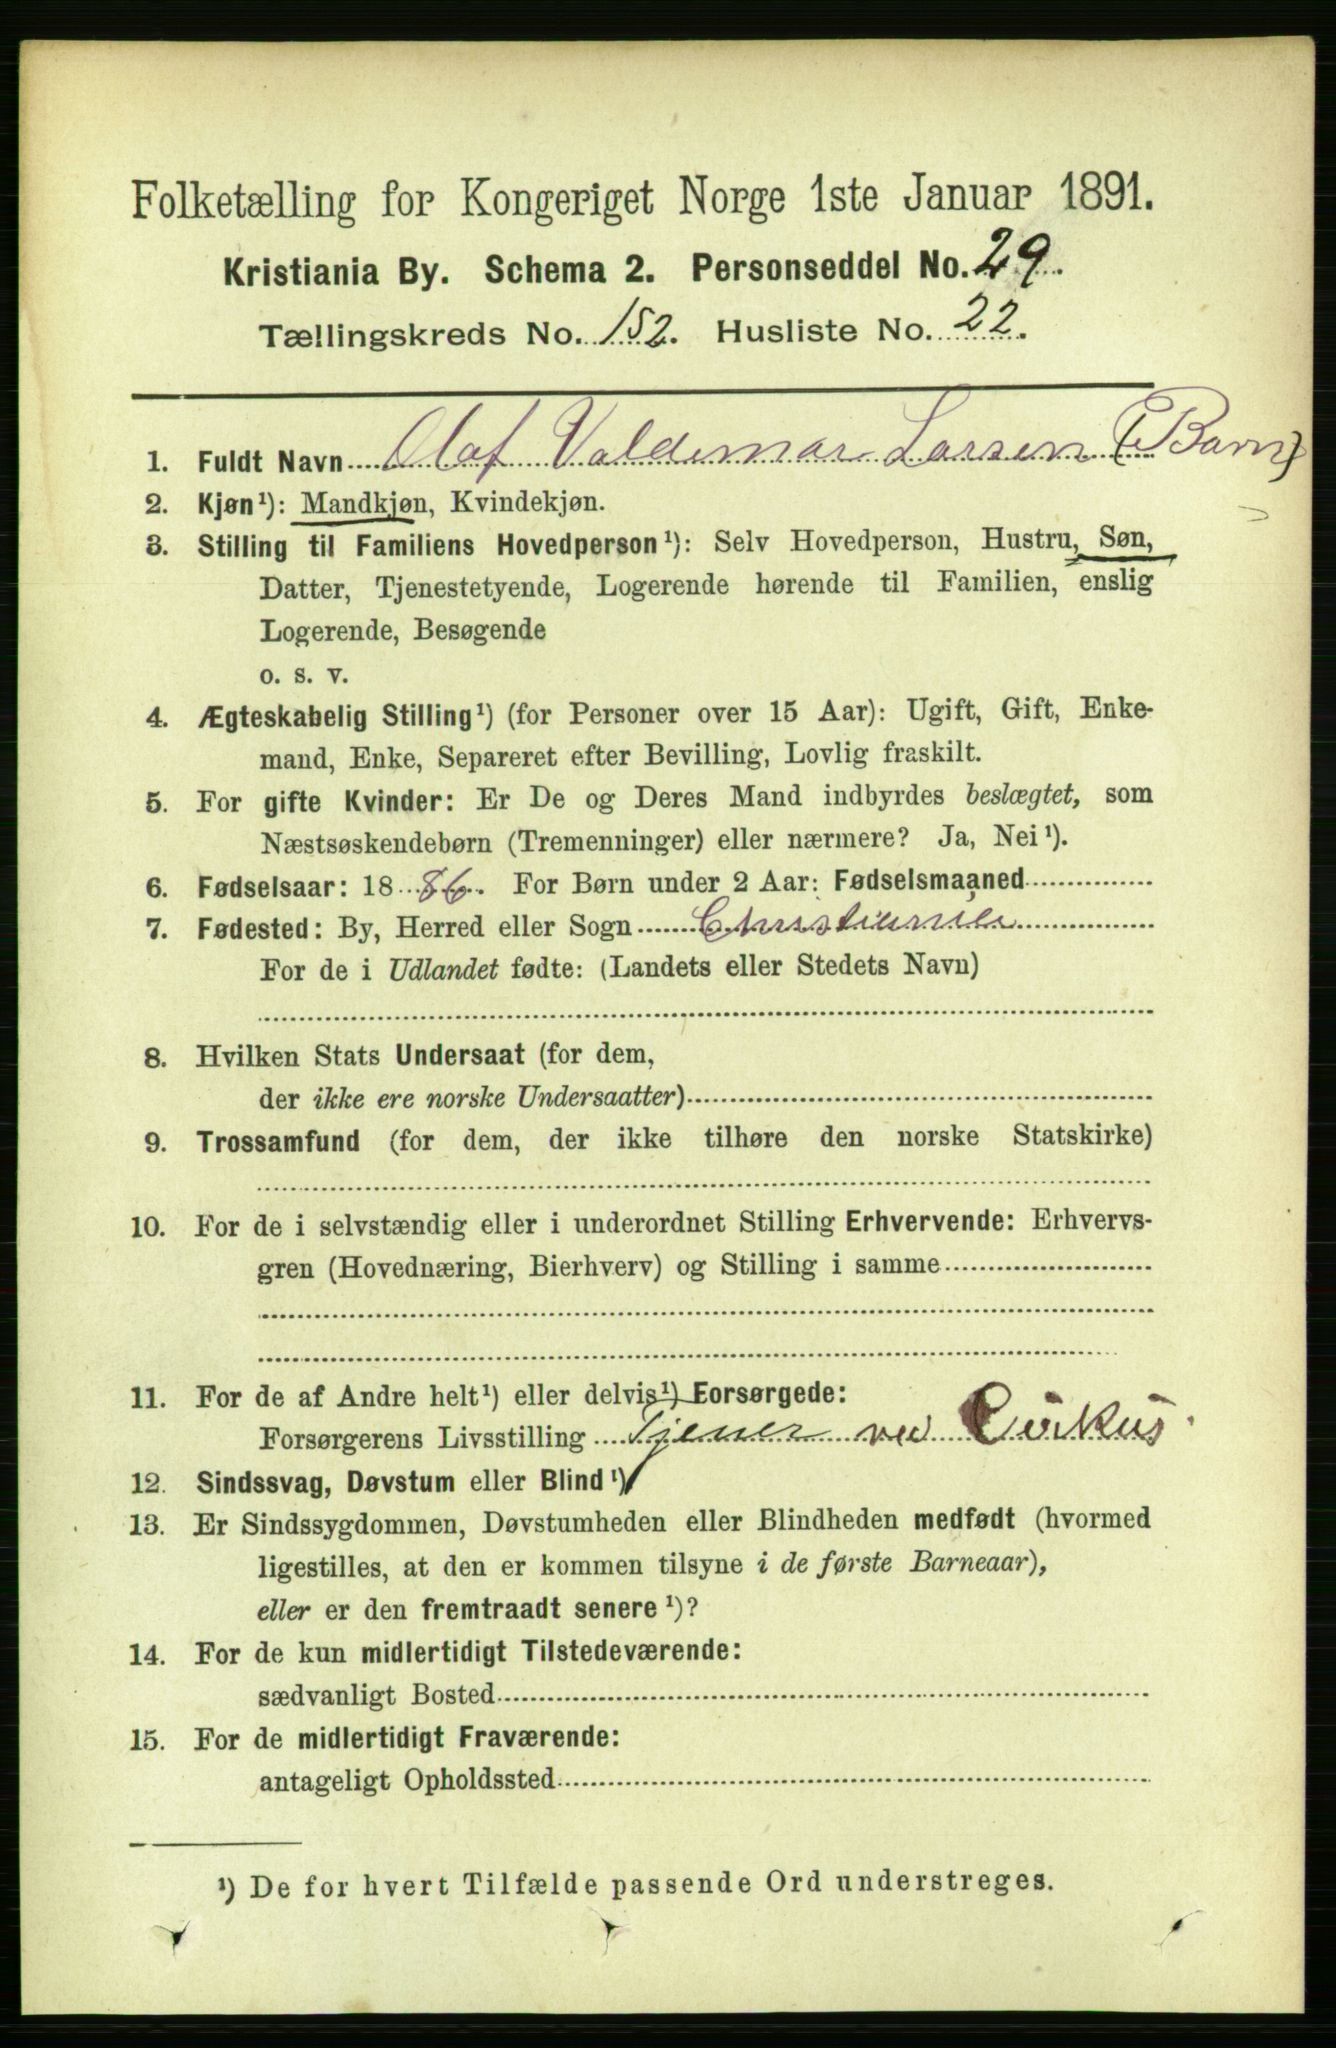 Folketælling for Kongeriget Norge 1ste Januar 1891.
Kristiania By. Schema 2. Personseddel No. 29.
Tællingskreds No. 152. Husliste No. 22.
1. Fuldt Navn Olaf Valdemar Larsen (Barn)
2. Kjøn¹): Mandkjøn, Kvindekjøn.
3. Stilling til Familiens Hovedperson¹): Selv Hovedperson, Hustru, Søn,
Datter, Tjenestetyende, Logerende hørende til Familien, enslig
Logerende, Besøgende
o. s. v.
4. Ægteskabelig Stilling¹) (for Personer over 15 Aar): Ugift, Gift, Enke-
mand, Enke, Separeret efter Bevilling, Lovlig fraskilt.
5. For gifte Kvinder: Er De og Deres Mand indbyrdes beslægtet, som
Næstsøskendebørn (Tremenninger) eller nærmere? Ja, Nei¹).
6. Fødselsaar: 1886. For Børn under 2 Aar: Fødselsmaaned
7. Fødested: By, Herred eller Sogn Christiania
For de i Udlandet fødte: (Landets eller Stedets Navn)
8. Hvilken Stats Undersaat (for dem,
der ikke ere norske Undersaatter)
9. Trossamfund (for dem, der ikke tilhøre den norske Statskirke)
10. For de i selvstændig eller i underordnet Stilling Erhvervende: Erhvervs-
gren (Hovednæring, Bierhverv) og Stilling i samme
11. For de af Andre helt¹) eller delvis¹) Forsørgede:
Forsørgerens Livsstilling Tjener ved Cirkus
12. Sindssvag, Døvstum eller Blind¹)
13. Er Sindssygdommen, Døvstumheden eller Blindheden medfødt (hvormed
ligestilles, at den er kommen tilsyne i de første Barneaar),
eller er den fremtraadt senere¹)?
14. For de kun midlertidigt Tilstedeværende:
sædvanligt Bosted
15. For de midlertidigt Fraværende:
antageligt Opholdssted
¹) De for hvert Tilfælde passende Ord understreges.